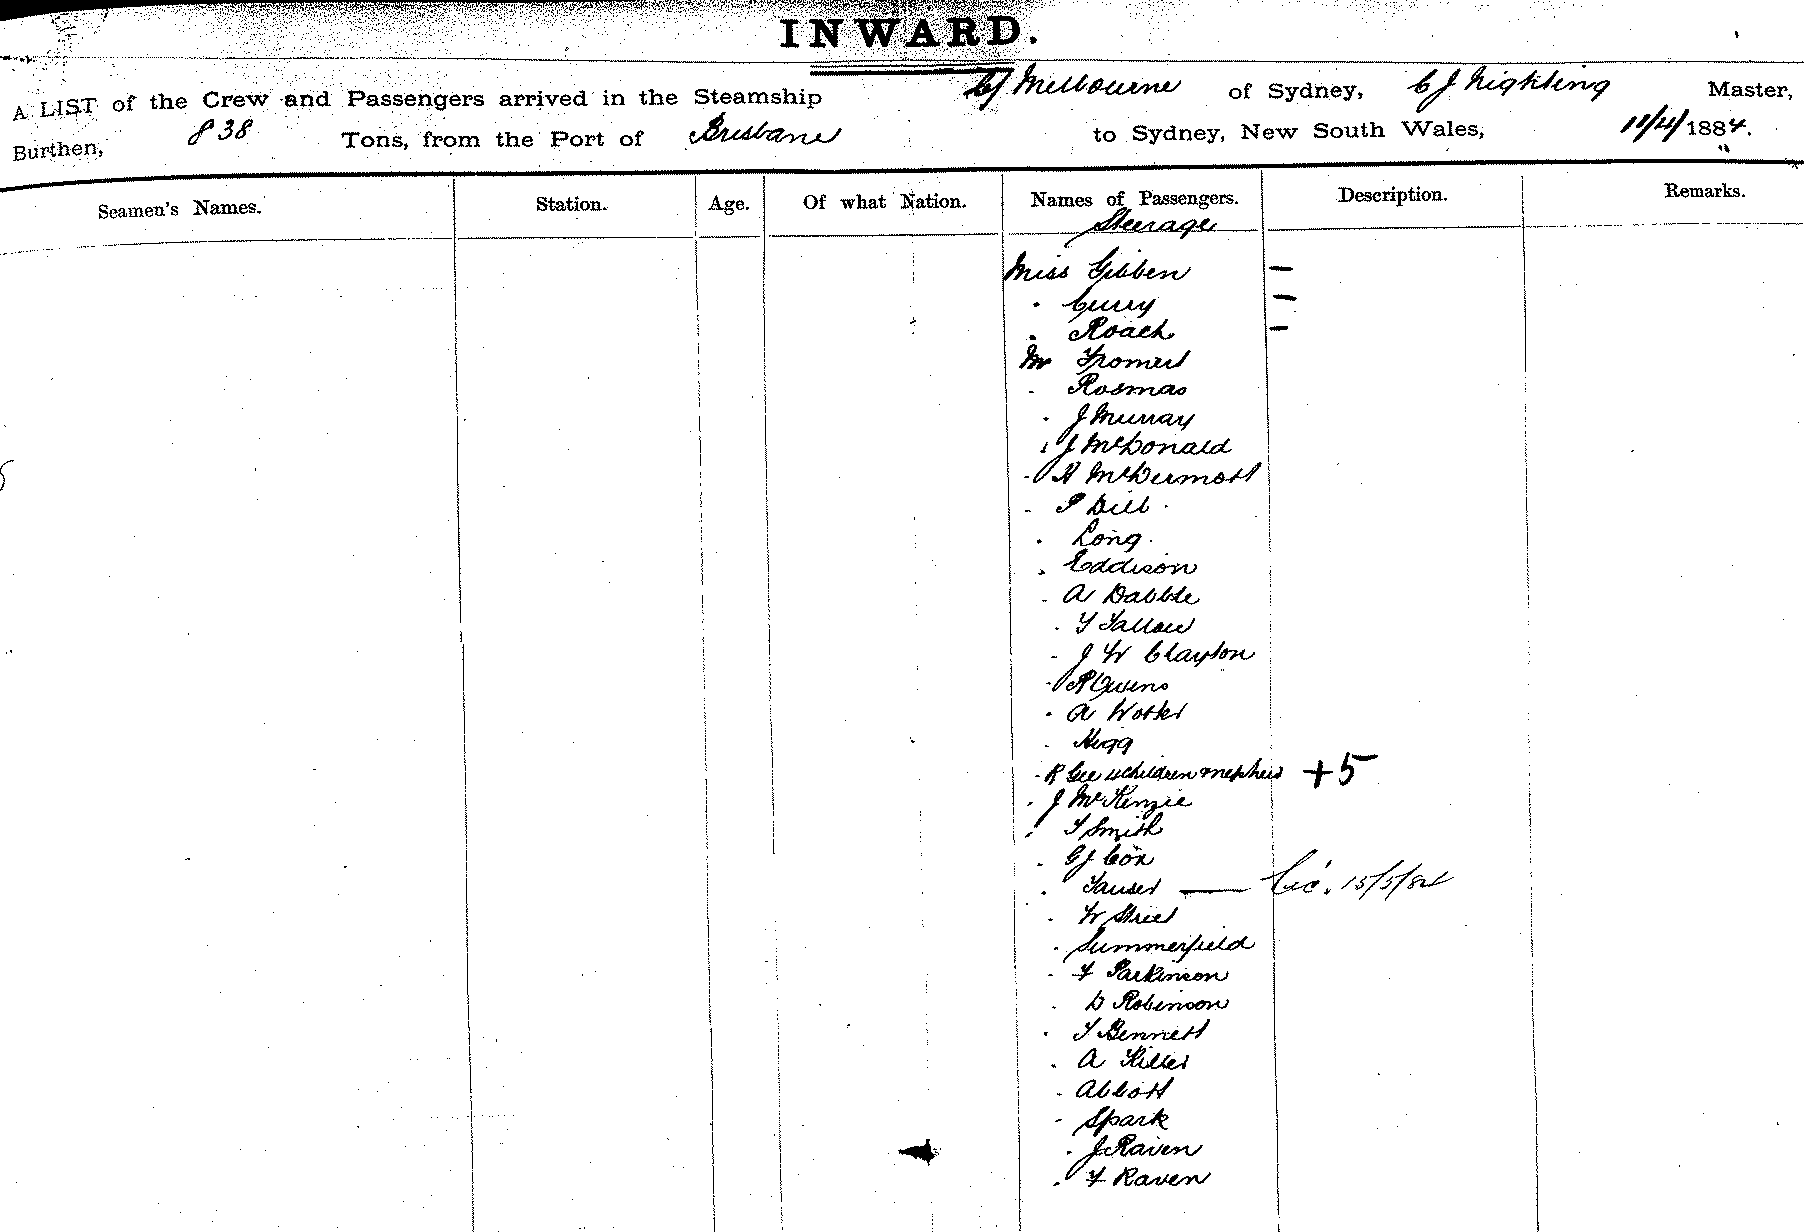 INWARD.
A LIST of the Crew and Passengers arrived in the Steamship Cy Melbourne of Sydney, C J Nightling Master,
Burthen, 838 Tons, from the Port of Brisbane to Sydney, New South Wales, 11/4/1884.
Seamen's Names. Station. Age. Of what Nation. Names of Passengers. Description. Remarks.
Steerage
Miss Gibben —
" Curry —
" Roach —
Mr
" Rosmas
" J Murray
" J McDonald
" H McDermott
" P Dill
" Long
" Eddison
" A Dabble
" T
" J W Clayton
" R Owens
" A
" Higg
" R Gee 4 children & nephew +5
" J McKenzie
" T Smith
" G J Cox
" — 15/5/84
" W Street
" Summerfield
" F Parkinson
" D Robinson
" T Bennett
" A
" Abbott
" Spark
" J Raven
" F Raven